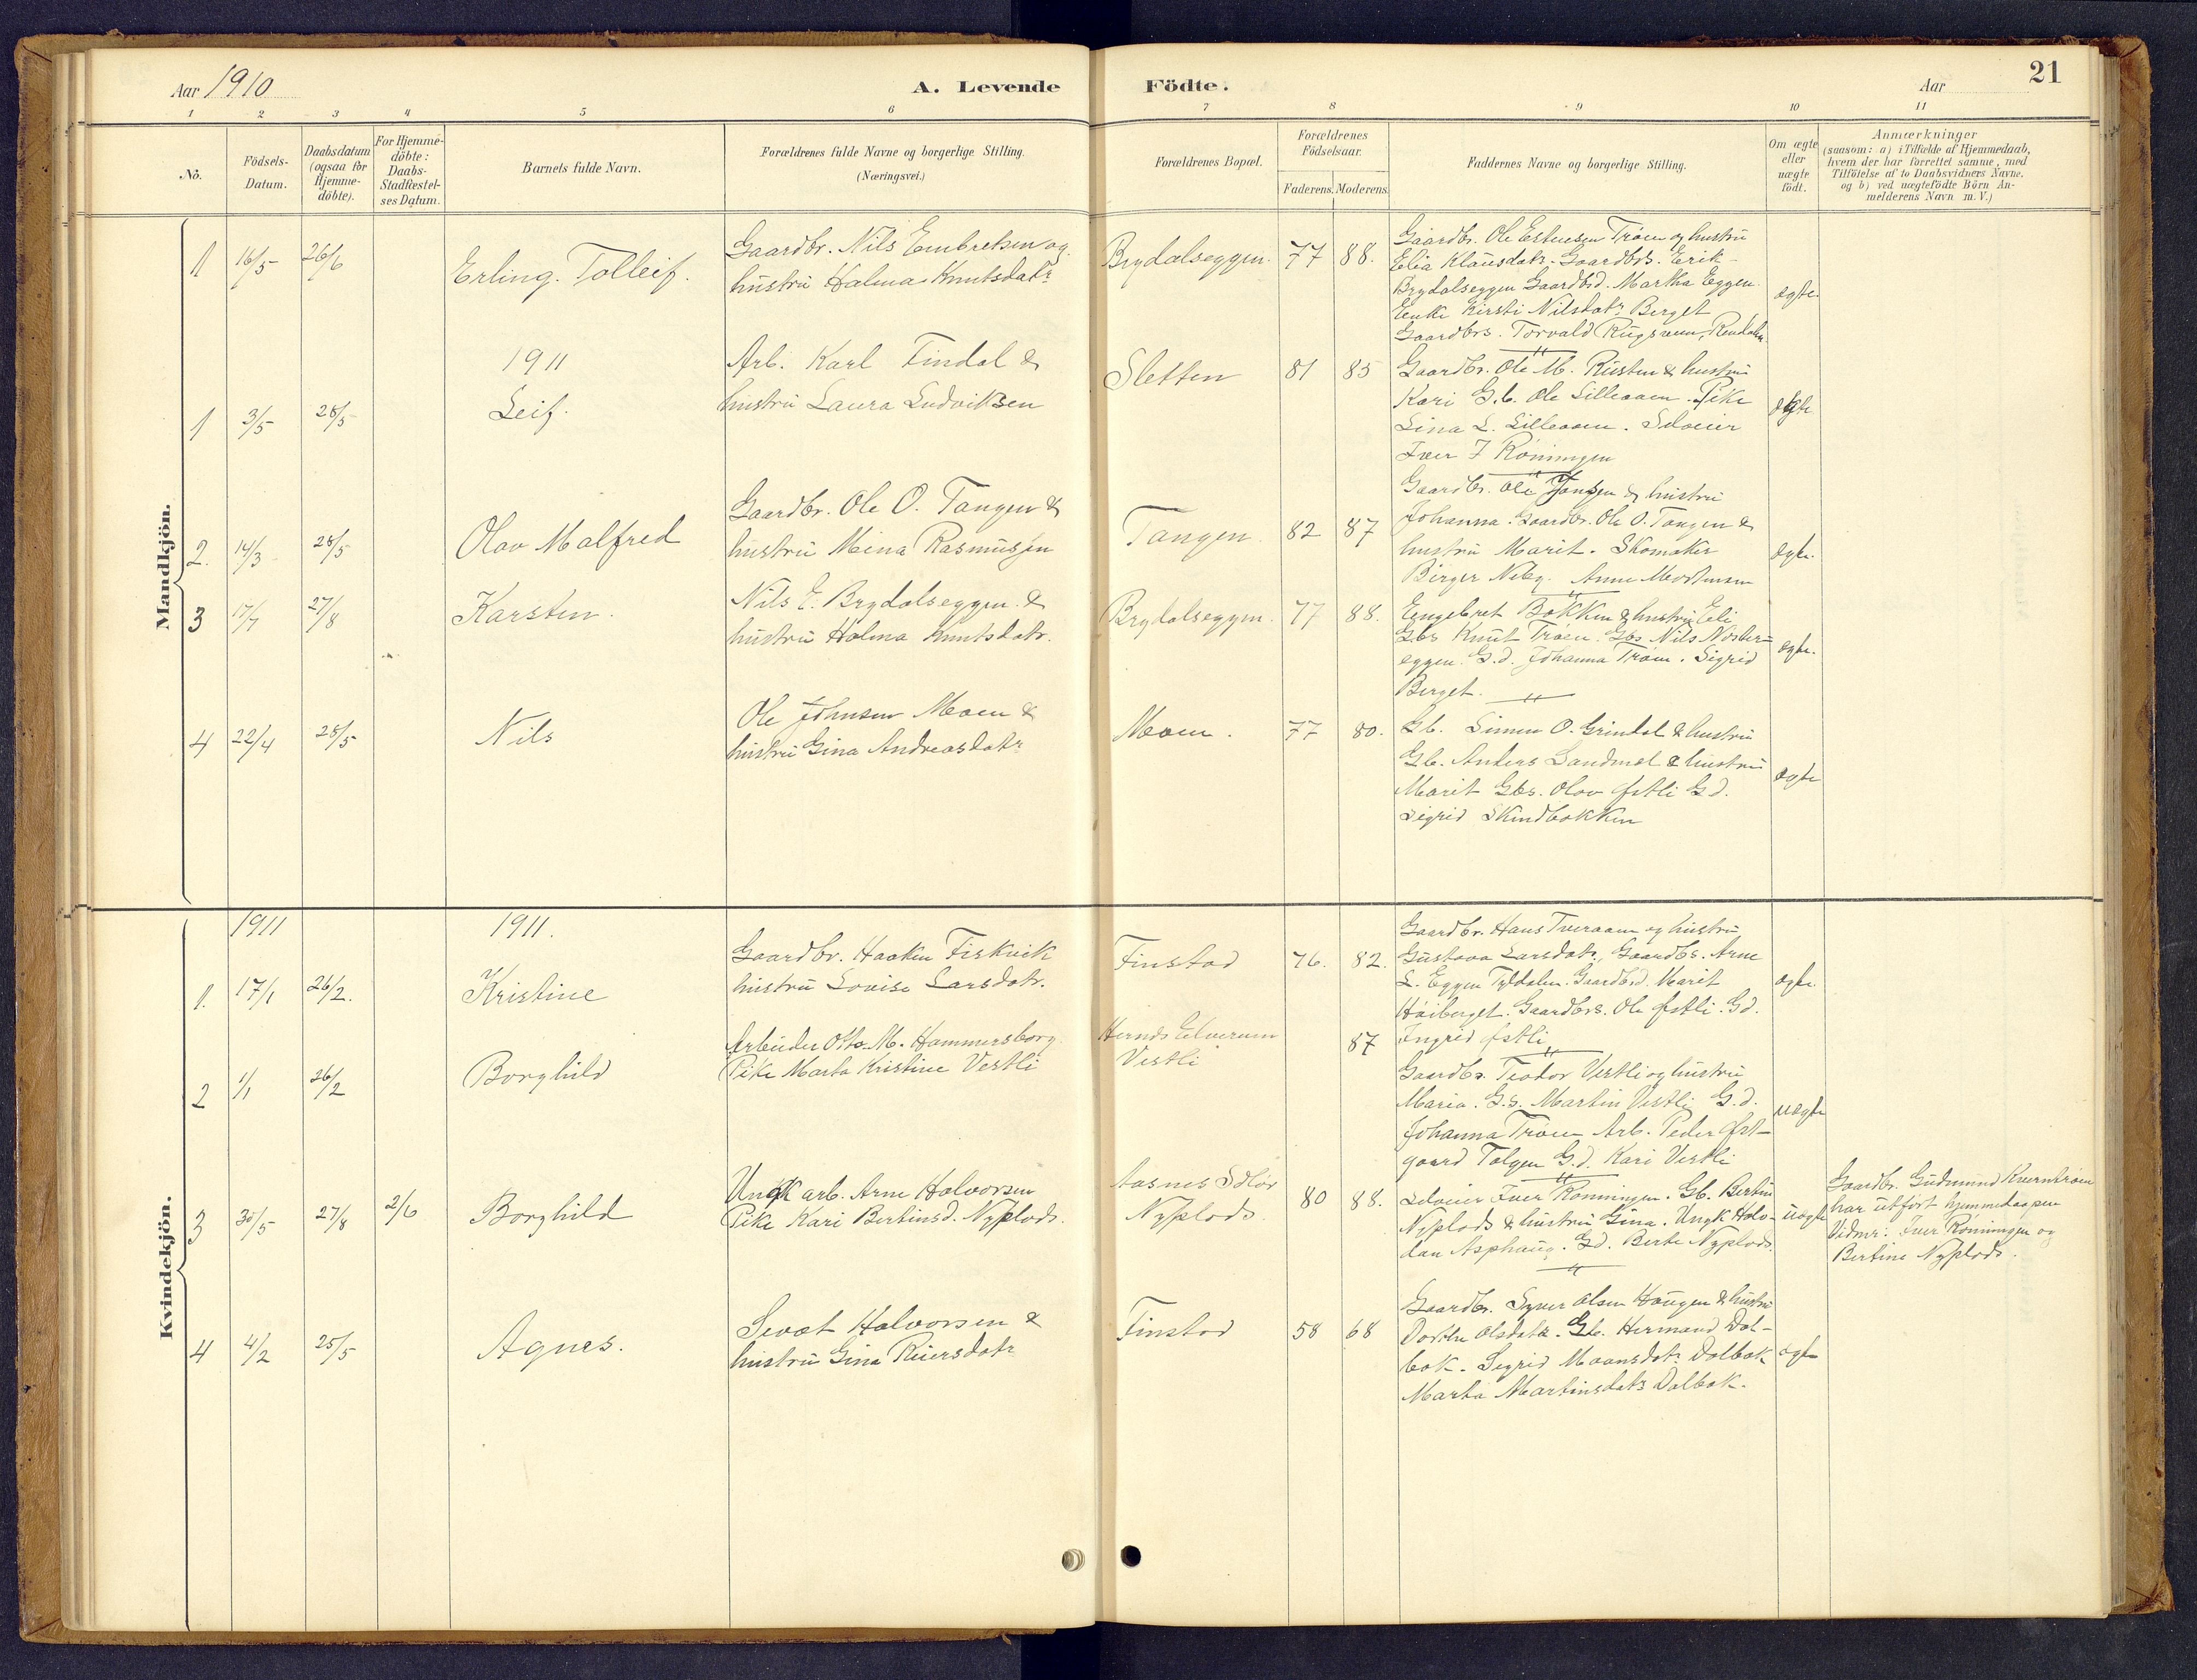 Aar 1910
A. Levende
Födte.
Aar
21
1 2 3 4 5 6 7 8 9 10 11
No.
Födsels-
Datum.
Daabsdatum
(ogsaa för
Hjemme-
döbte).
For Hjemme-
döbte:
Daabs-
Stadfæstel-
ses Datum.
Barnets fulde Navn.
Forældrenes fulde Navne og borgerlige Stilling.
(Næringsvei.)
Forældrenes Bopæl.
Forældrenes
Födselsaar.
Faderens. Moderens.
Faddernes Navne og borgerlige Stilling.
Om ægte
eller
uægte
födt.
Anmærkninger
(saasom: a) i Tilfælde af Hjemmedaab,
hvem der har forrettet samme, med
Tilföielse af to Daabsvidners Navne.
og b) ved uægtefödte Börn An-
melderens Navn m. V.)
Mandkjön.
1 16/5 26/6
Erling. Tolleif.
Gaardbr. Nils Embretsen og
hustru Halma Knutsdatr
Brydalseggen. 77 88.
Gaardbr. Ole Estensen Trøen og hustru
Elia Klausdatr. Gaardbrs. Erik
Brydalseggen Gaardbd. Martha Eggen.
Enke Kirsti Nilsdatr Berget
Gaardbrs. Torvald Rugsveen, Rendalen
ægte.
1911
1 3/5 28/5
Leif.
Arb. Karl Findal &
hustru Laura Ludviksen
Sletten 81 85
Gaardbr. Ole M. Rusten & hustru
Kari G.b. Ole Lilleaaen. Pike
Lina L. Lilleaaen. Selveier
Iver I Röningen
ægte
2. 14/3 28/5
Olav Malfred
Gaardbr. Ole O. Tangen &
hustru Mena Rasmussen
Tangen. 82 87
Gaardbr. Ole Jonsen & hustru
Johanna. Gaardbr. Ole O. Tangen &
hustru Marit. Skomaker
Birger Neby. Anne Mortensen
ægte.
3 17/7 27/8
Karsten.
Nils E. Brydalseggen &
hustru Halma Knutsdatr.
Brydalseggen. 77 88.
Engebret Bakken & hustru Eli
Gbs Knut Trøen. Gbs Nils Nosber-
eggen. G.d. Johanna Trøen. Sigrid
Berget.
ægte.
4 22/4 28/5
Nils
Ole Johnsen Moen &
hustru Gina Andreasdatr
Moen. 77 80.
Gb. Simen O. Grindal & hustru
Gb. Anders Sandmæl & hustru
Marit Gbs. Olav Østli G.d.
Sigrid Skindbakken
ægte
Kvindekjön.
1911 1911.
1. 17/1 26/2.
Kristine
Gaardbr. Haaken Fiskvik
hustru Lovise Larsdatr.
Finstad 76. 82.
Gaardbr. Hans Tveraaen og hustru
Gustava Larsdatr, Gaardbs. Arne
L. Eggen Tyldalen. Gaardbd. Marit
Høiberget. Gaardbrs. Ole Østli. Gd.
Ingrid Østli
ægte.
2 1/1 26/2
Borghild
Arbeider Otto M. Hammersborg
Pike Marta Kristine Vestli
Hernds Elverum
Vestli
87
Gaardbr. Teodor Vestli og hustru
Maria. G.s. Martin Vestli G.d.
Johanna Trøen Arb. Peder Øst-
gaard Tolgen G.d. Kari Vestli
uægte
3 30/5 27/8 2/6
Borghild
Ungk arb. Arne Halvorsen
Pike Kari Bertinsd. Nyplads.
Aasnes Solør
Nyplads. 80 88.
Selveier Iver Röningen. Gb. Bertin
Nyplads & hustru Gina. Ungk Halv-
dan Asphaug. Gd. Berte Nyplads.
uægte
Gaardbr. Gudmund Kverntrøen
har utført hjemmedaapen
Vidner: Iver Röningen og
Bertine Nyplads.
4 4/2 25/5
Agnes.
Sevat Halvorsen &
hustru Gina Reiersdatr
Finstad 58 68
Gaardbr. Syver Olsen Haugen & hustru
Dorthe Olsdatr. Gb. Hermand Dal-
bak. Sigrid Moansdatr Dalbak
Marta Martinsdatr Dalbak.
ægte